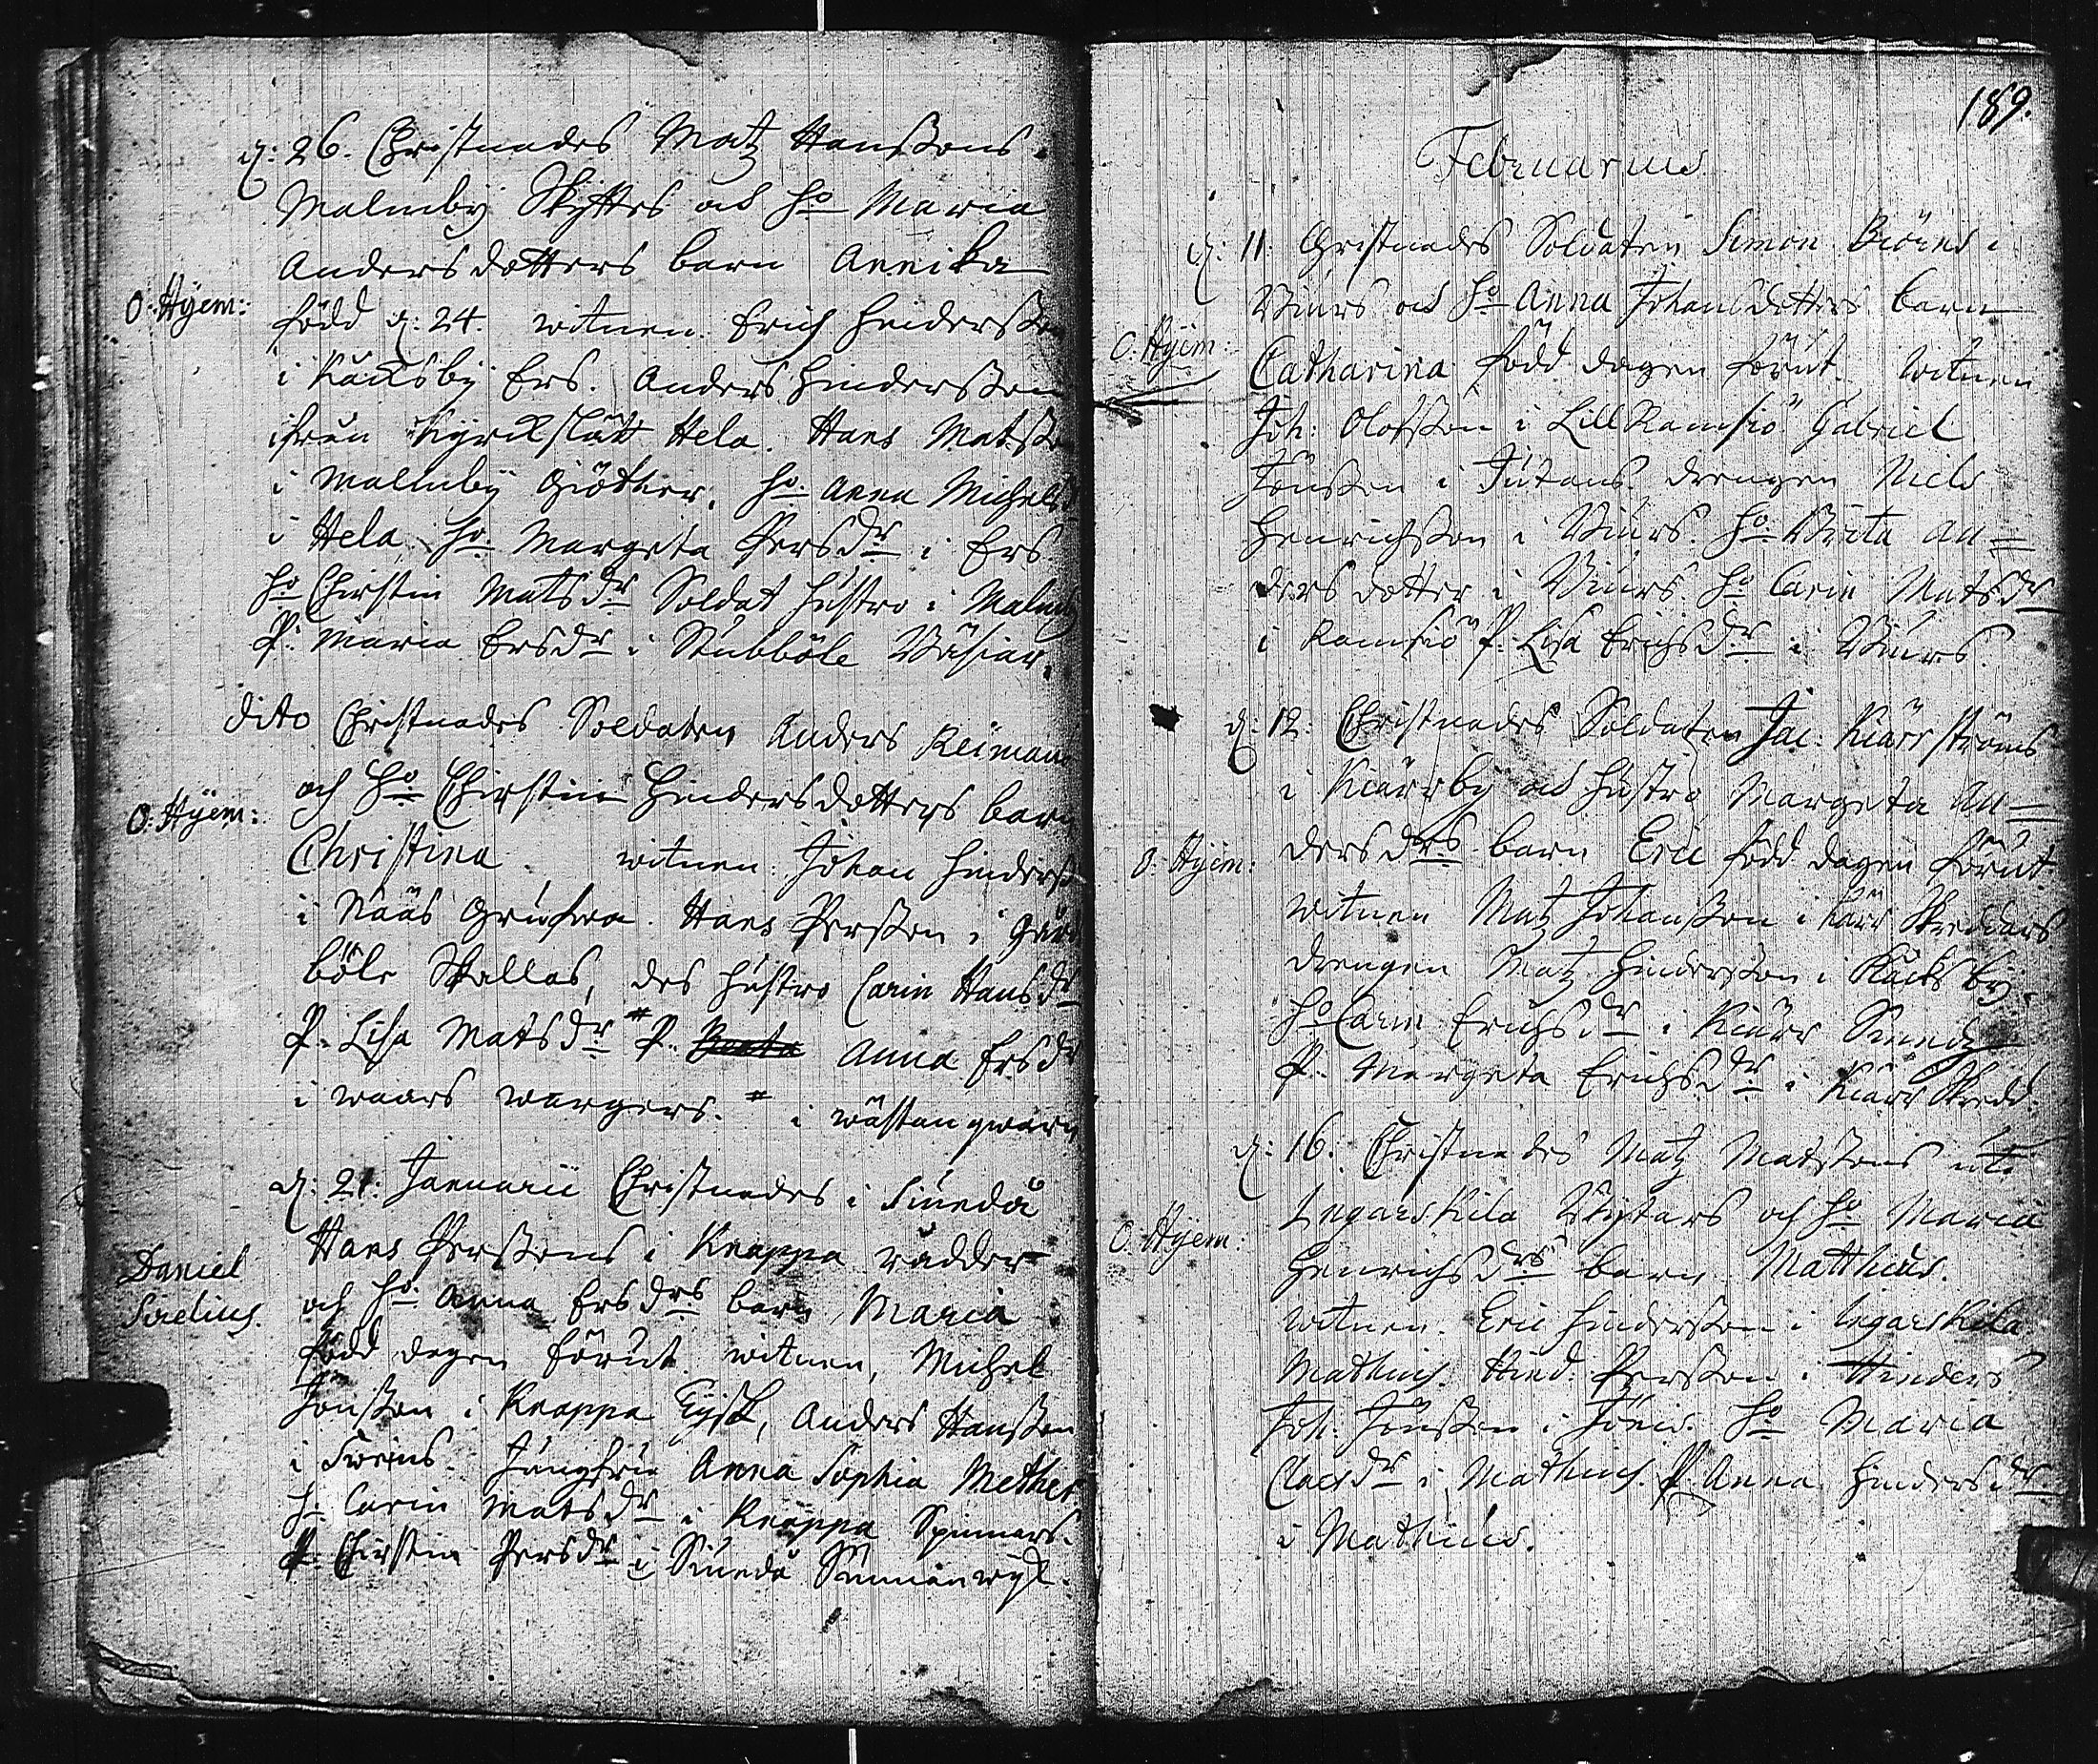 d: 26. Christnades Matz Hanssons
Malmby Skyttes och ho Maria
Andersdotters barn Annika
O. Hyem:
född d: 24. witnen. Erich Hendersson
i Käcksby Ers. Anders Hindersson
ifrån Kyrckslätt Hela. Hans Matsso
i Malmby Giöther. ho Anna Michels
i Hela, ho Margeta Persdr i Ers
ho Chirstin Matsdr Soldat hustro i Malmby
P: Maria Ersdr i Stubböle Wäsiar.
dito Christnades Soldaten Anders Reiman
och ho Chirstin Hindersdotters barn
O. Hyem:
Christina. witnen: Johan Hinderss
i Nääs Grufwa. Hans Persson i Gär
böle Skallas, des hustro Carin Hansdr
P. Lisa Matsdr # P. Beata Anna Ersdr
i waars wargers. # i wästan qwarn
d: 21. Januarii Christnades i Siundå
Hans Perssons i Knappa rådder
Daniel
Sirelius.
och ho Anna Ersdrs barn Maria
född dagen förut. witnen, Michel
Jönsson i Knappa Eysk, Anders Hansson
i Swens. Jungfru Anna Sophia Mether
h: Carin Matsdr i Knappa Spinnars.
P. Chirstin Persdr i Siundå
189.
Februarius
d. 11. Christnades Soldaten Simon Biörns i
Biurs och ho Anna Johansdotters barn
O. Hyem:
Catharina född dagen förut. Witnen
Joh: Olofsson i Lill Ramsiö Gabriel
Jönsson i Jutans drengen Niels
Henrichsson i Biurs. ho Brita An=
dersdotter i Biurs. ho Carin Matsdr
i Ramsiö P. Lisa Erichsdr i Biurs.
d: 12. Christnades Soldaten Jac. Kiärrströms
i Kiärrby och hustro Margeta An=
O. Hyem:
dersdrs barn Eric född dagen förut
witnen Matz Johansson i Kärr Skreddars
drengen Matz Hindersson i Käcksby.
ho Carin Erichsdr i Kiärr Smedz
P. Margeta Erichsdr i Kiärr Skredd.
d: 16. Christnades Matz Matssons uti
Ingarskila och ho Maria
O. Hyem:
Henrichsdrs barn Matthius.
witnen. Eric Hindersson i Ingarskila
Mathius. Hind: Persson i Hinders
Joh: Jönsson i Jönis. ho Maria
Claesdr i Mathius. P Anna Hindersdr
i Mathius.